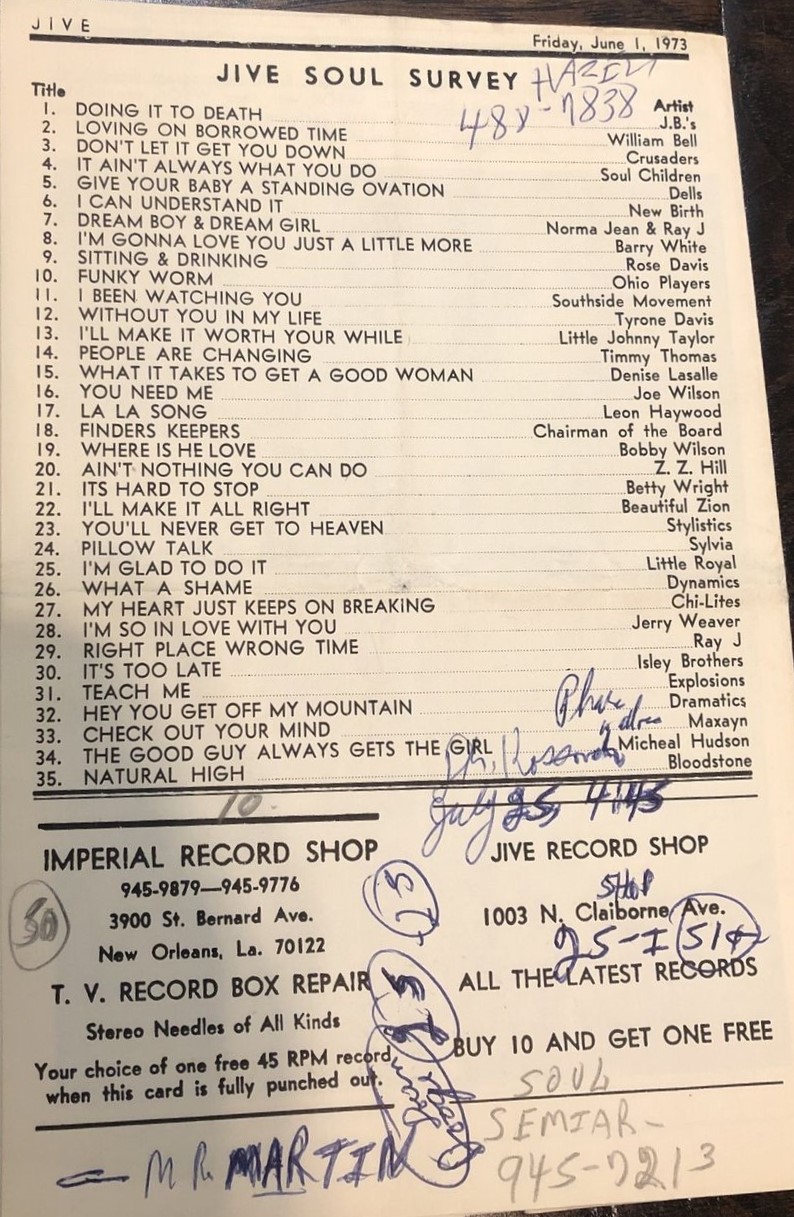 JIVE
Friday, June 1, 1973
JIVE SOUL SURVEY
488-7838
Title Artist
1. DOING IT TO DEATH J.B.'s
2. LOVING ON BORROWED TIME William Bell
3. DON'T LET IT GET YOU DOWN Crusaders
4. IT AIN'T ALWAYS WHAT YOU DO Soul Children
5. GIVE YOUR BABY A STANDING OVATION Dells
6. I CAN UNDERSTAND IT New Birth
7. DREAM BOY & DREAM GIRL Norma Jean & Ray J
8. I'M GONNA LOVE YOU JUST A LITTLE MORE Barry White
9. SITTING & DRINKING Rose Davis
10. FUNKY WORM Ohio Players
11. I BEEN WATCHING YOU Southside Movement
12. WITHOUT YOU IN MY LIFE Tyrone Davis
13. I'LL MAKE IT WORTH YOUR WHILE Little Johnny Taylor
14. PEOPLE ARE CHANGING Timmy Thomas
15. WHAT IT TAKES TO GET A GOOD WOMAN Denise Lasalle
16. YOU NEED ME Joe Wilson
17. LA LA SONG Leon Haywood
18. FINDERS KEEPERS Chairman of the Board
19. WHERE IS HE LOVE Bobby Wilson
20. AIN'T NOTHING YOU CAN DO Z. Z. Hill
21. ITS HARD TO STOP Betty Wright
22. I'LL MAKE IT ALL RIGHT Beautiful Zion
23. YOU'LL NEVER GET TO HEAVEN Stylistics
24. PILLOW TALK Sylvia
25. I'M GLAD TO DO IT Little Royal
26. WHAT A SHAME Dynamics
27. MY HEART JUST KEEPS ON BREAKING Chi-Lites
28. I'M SO IN LOVE WITH YOU Jerry Weaver
29. RIGHT PLACE WRONG TIME Ray J
30. IT'S TOO LATE Isley Brothers
31. TEACH ME Explosions
32. HEY YOU GET OFF MY MOUNTAIN Dramatics
33. CHECK OUT YOUR MIND Maxayn
34. THE GOOD GUY ALWAYS GETS THE GIRL Micheal Hudson
35. NATURAL HIGH Bloodstone
10.
July 25, 4:45
IMPERIAL RECORD SHOP
945-9879—945-9776
3900 St. Bernard Ave.
New Orleans, La. 70122
T. V. RECORD BOX REPAIR
Stereo Needles of All Kinds
Your choice of one free 45 RPM record
when this card is fully punched out.
50
JIVE RECORD SHOP
SHOP
1003 N. Claiborne Ave.
ALL THE LATEST RECORDS
BUY 10 AND GET ONE FREE
SOUL
SEMIAR-
945-7213
MR. MARTIN